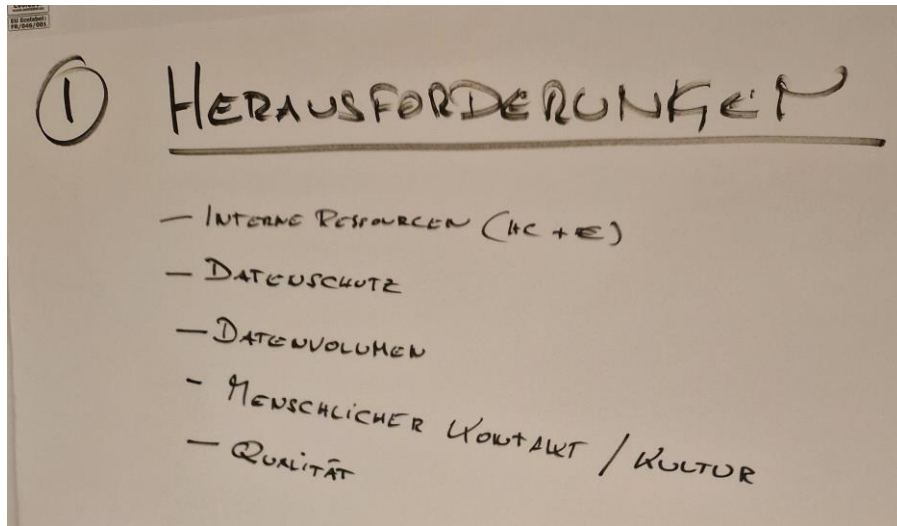 EU Ecolabel :
FR/046/001
① HERAUSFORDERUNGEN
— INTERNE RESSOURCEN (HC + €)
— DATENSCHUTZ
— DATENVOLUMEN
- MENSCHLICHER KONTAKT / KULTUR
— QUALITÄT